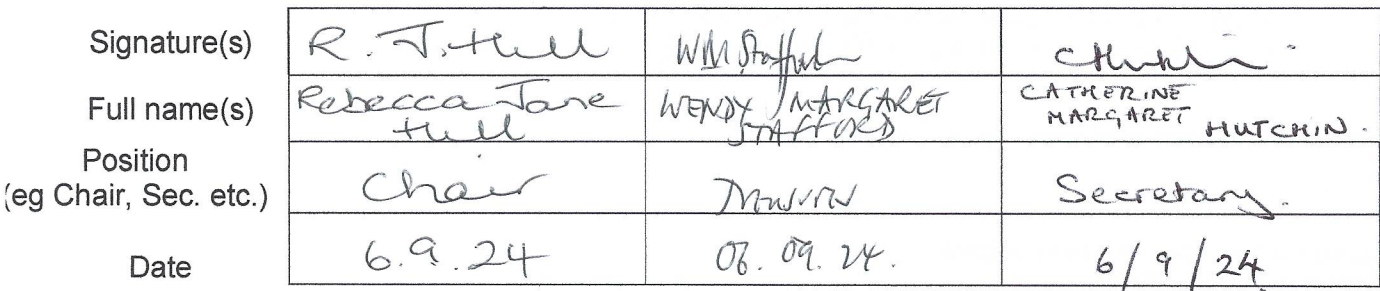 Signature(s) R. J. Hill WM Stafford CHutchin
Full name(s) Rebecca Jane Hill WENDY MARGARET STAFFORD CATHERINE MARGARET HUTCHIN.
Position
(eg Chair, Sec. etc.) Chair Secretary.
Date 6.9.24 06.09.24. 6/9/24